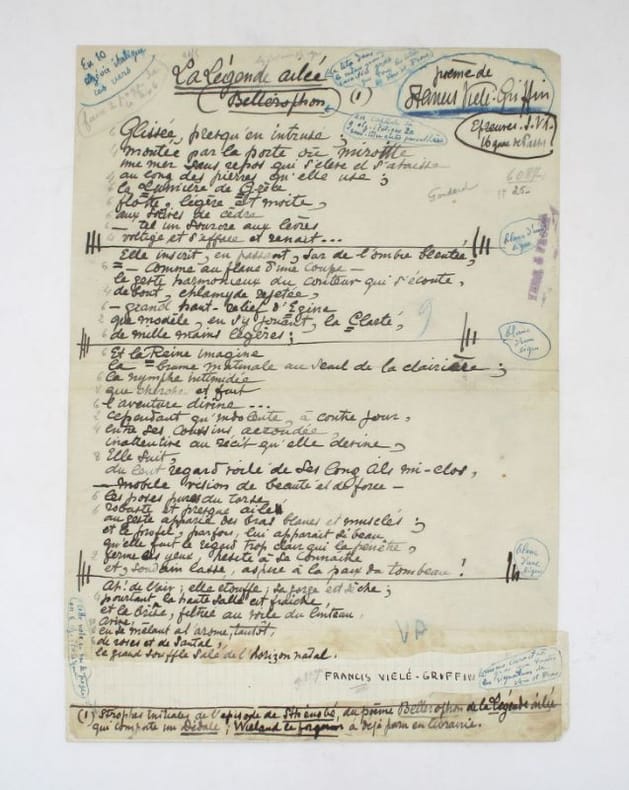 En 10
ces vers
La Légende ailée
Bellérophon (1)
poème de
Francis Vielé-Griffin
Epreuves. S.V.P.
16 quai de Passy
6087
25
Glissée, presqu'en intruse ;
montée par la porte où miroitte
une mer sans repos qui s'élève et s'abaisse
au long des pierres qu'elle use ;
la Lumière de Grèce
flotte, légère et moite,
aux solives de cèdre
— tel un sourire aux lèvres
voltige et s'efface et renaît...
blanc d'une ligne
Elle inscrit, en passant, sur de l'ombre bleutée,
— comme au flanc d'une coupe —
le geste harmonieux du conteur qui s'écoute,
debout, chlamyde rejetée,
— grand haut-relief d'Egine
que modèle, en s'y jouant, la Clarté,
de mille mains légères ;
9
blanc d'une ligne
Et la Reine imagine
la brume matinale au seuil de la clairière ;
la nymphe intimidée
que cherche et fuit
l'aventure divine...
cependant qu'indolente, à contre jour,
entre ses coussins, accoudée,
inattentive au récit qu'elle devine,
Elle suit,
du lent regard voilé de ses longs cils mi-clos,
— mobile vision de beauté et de force —
les poses pures du torse
robuste et presque ailé
au geste apparié des bras blancs et musclés ;
et le profil, parfois, lui apparaît si beau,
qu'elle fuit le regard trop clair qui la pénètre,
ferme les yeux, hésite à se connaître
et, soudain lasse, aspire à la paix du tombeau !
blanc d'une ligne
Ah ! de l'air ; elle étouffe ; sa gorge est sèche ;
pourtant la haute salle est fraîche
et la brise, filtrée au voile du linteau,
arrive,
en se mêlant al arome, tantôt,
de roses et de santal,
le grand souffle salé de l'horizon natal.
VA
FRANCIS VIELÉ-GRIFFIN
(1) Strophes initiales de l'épisode de Sthenobé, du poème Bellérophon de la Légende ailée
qui comporte un Dédale ; Wieland le forgeron a déjà paru en librairie.